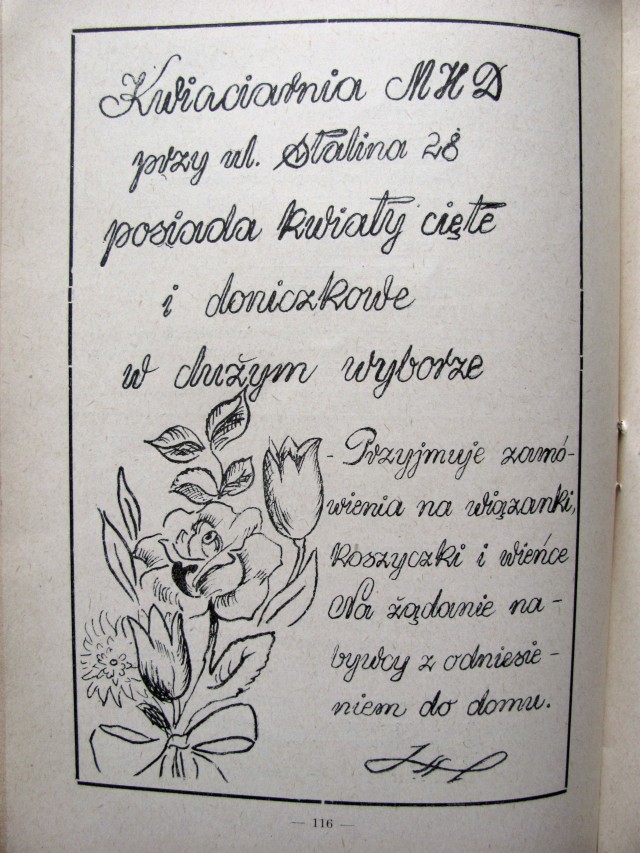 Kwiaciarnia MHD
przy ul. Stalina 28
posiada kwiaty cięte
i doniczkowe
w dużym wyborze
- Przyjmuje zamó-
wienia na wiązanki,
koszyczki i wieńce
Na żądanie na-
bywcy z odniesie-
niem do domu.
— 116 —